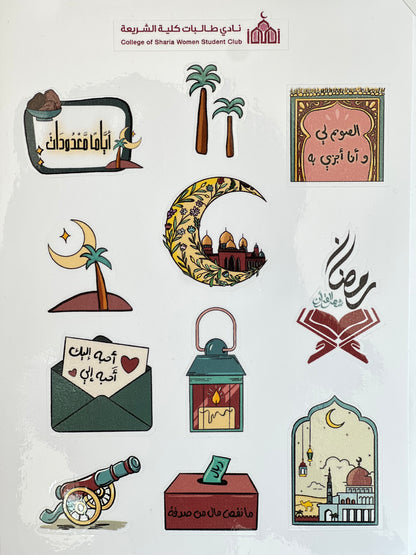 نادي طالبات كلية الشريعة
College of Sharia Women Student Club
أَيَّامًا مَّعْدُودَاتٍ
الصوم لي
و أنا أجزي به
رمضان
شهر القرآن
أحبه إليك
أحبه إلي
ريال
ما نقص مال من صدقة